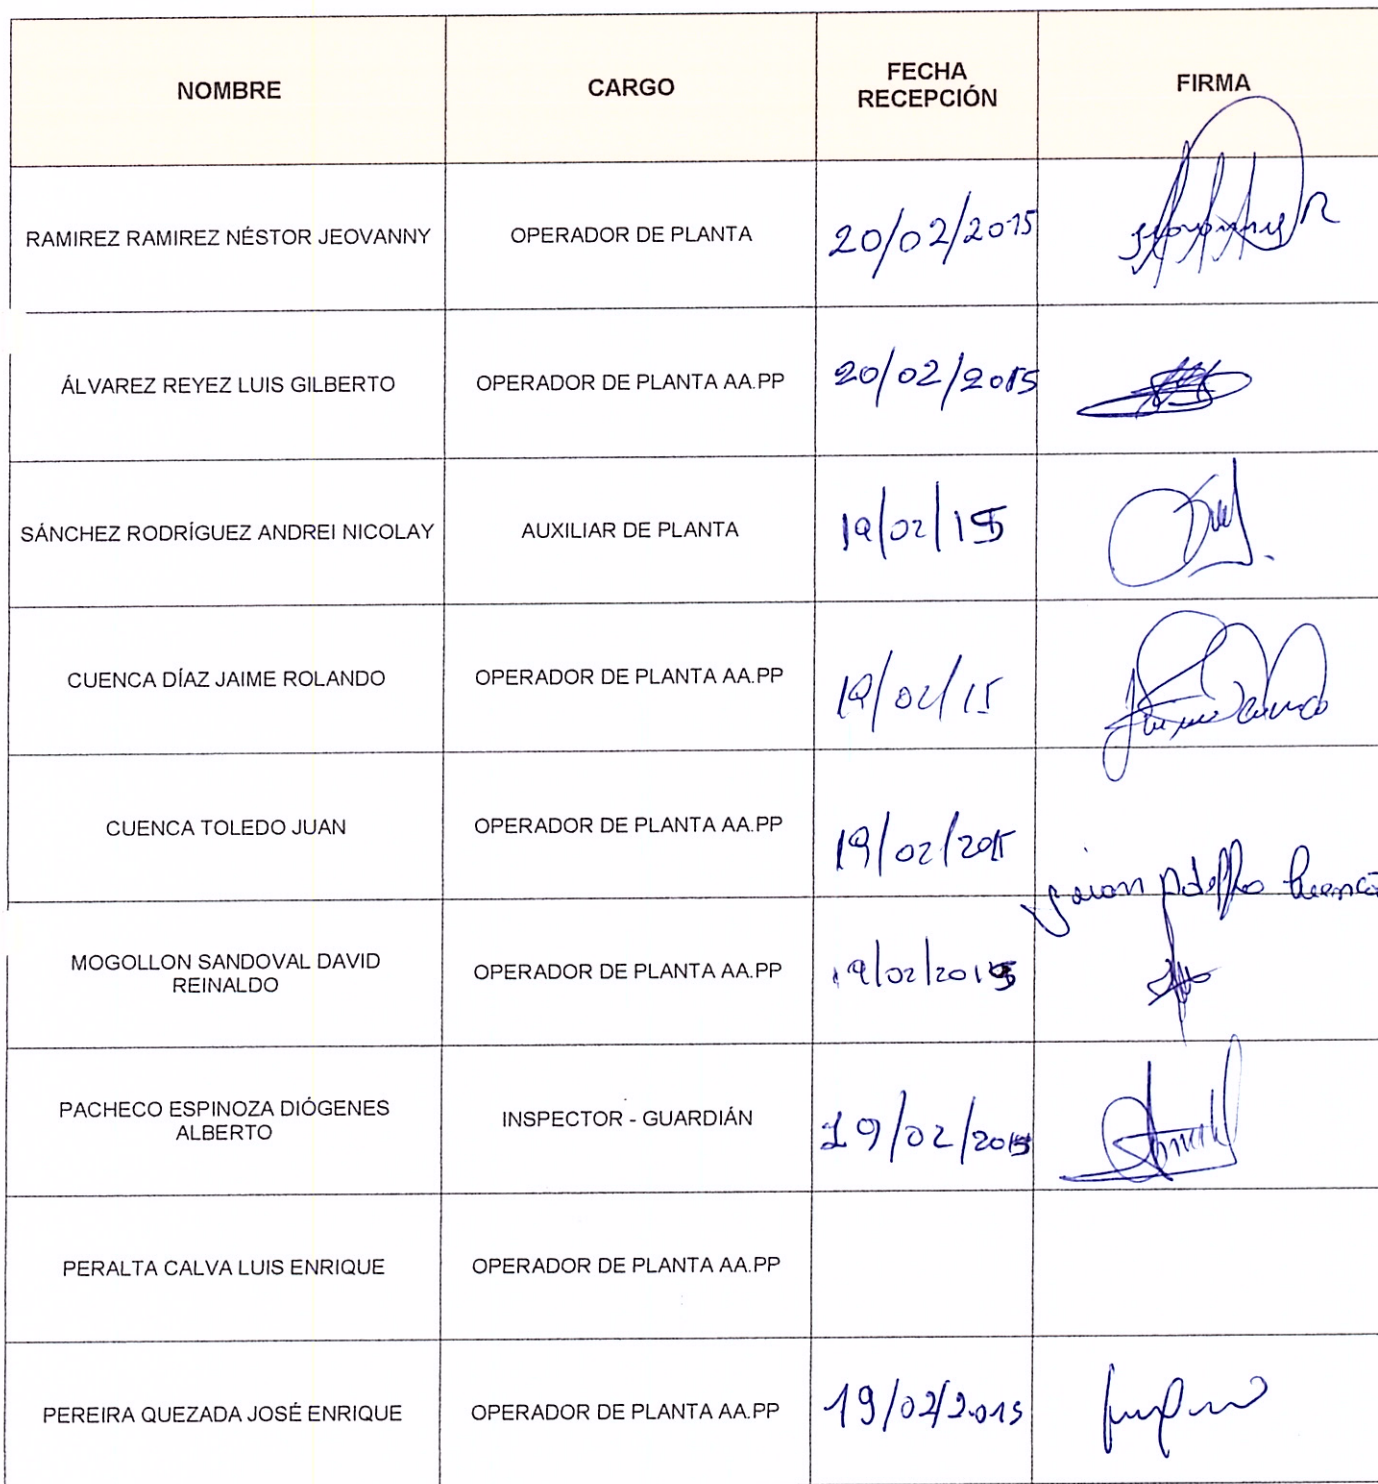 NOMBRE CARGO FECHA RECEPCIÓN FIRMA
RAMIREZ RAMIREZ NÉSTOR JEOVANNY OPERADOR DE PLANTA 20/02/2015
ÁLVAREZ REYEZ LUIS GILBERTO OPERADOR DE PLANTA AA.PP 20/02/2015
SÁNCHEZ RODRÍGUEZ ANDREI NICOLAY AUXILIAR DE PLANTA 19/02/15
CUENCA DÍAZ JAIME ROLANDO OPERADOR DE PLANTA AA.PP 19/02/15
CUENCA TOLEDO JUAN OPERADOR DE PLANTA AA.PP 19/02/2015
MOGOLLON SANDOVAL DAVID REINALDO OPERADOR DE PLANTA AA.PP 19/02/2015
PACHECO ESPINOZA DIÓGENES ALBERTO INSPECTOR - GUARDIÁN 19/02/2015
PERALTA CALVA LUIS ENRIQUE OPERADOR DE PLANTA AA.PP
PEREIRA QUEZADA JOSÉ ENRIQUE OPERADOR DE PLANTA AA.PP 19/02/2015